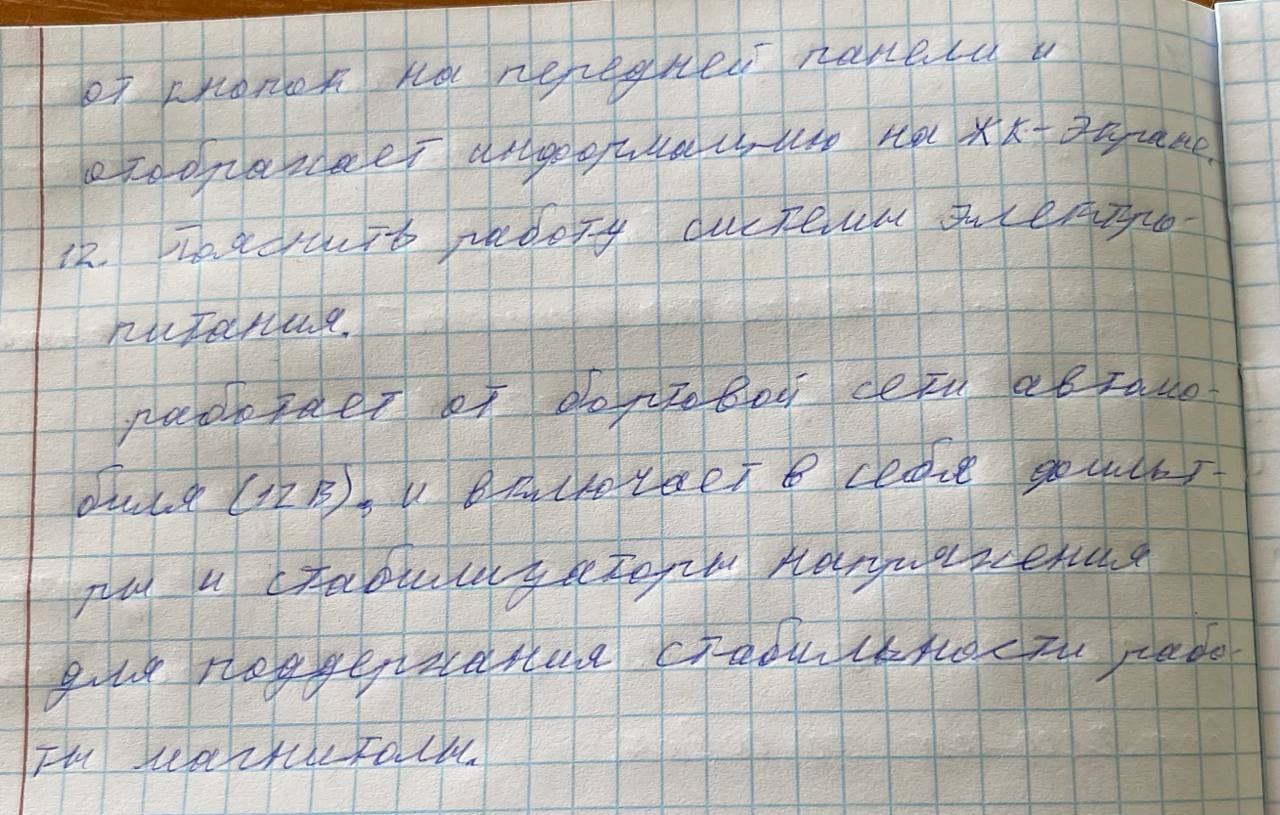 от кнопок на передней панели и
отображает информацию на ЖК-Экране.
12. Пояснить работу системы электро-
питания.
работает от бортовой сети автомо-
биля (12В), и включает в себя фильт-
ры и стабилизаторы напряжения
для поддержания стабильности рабо-
ты магнитолы.